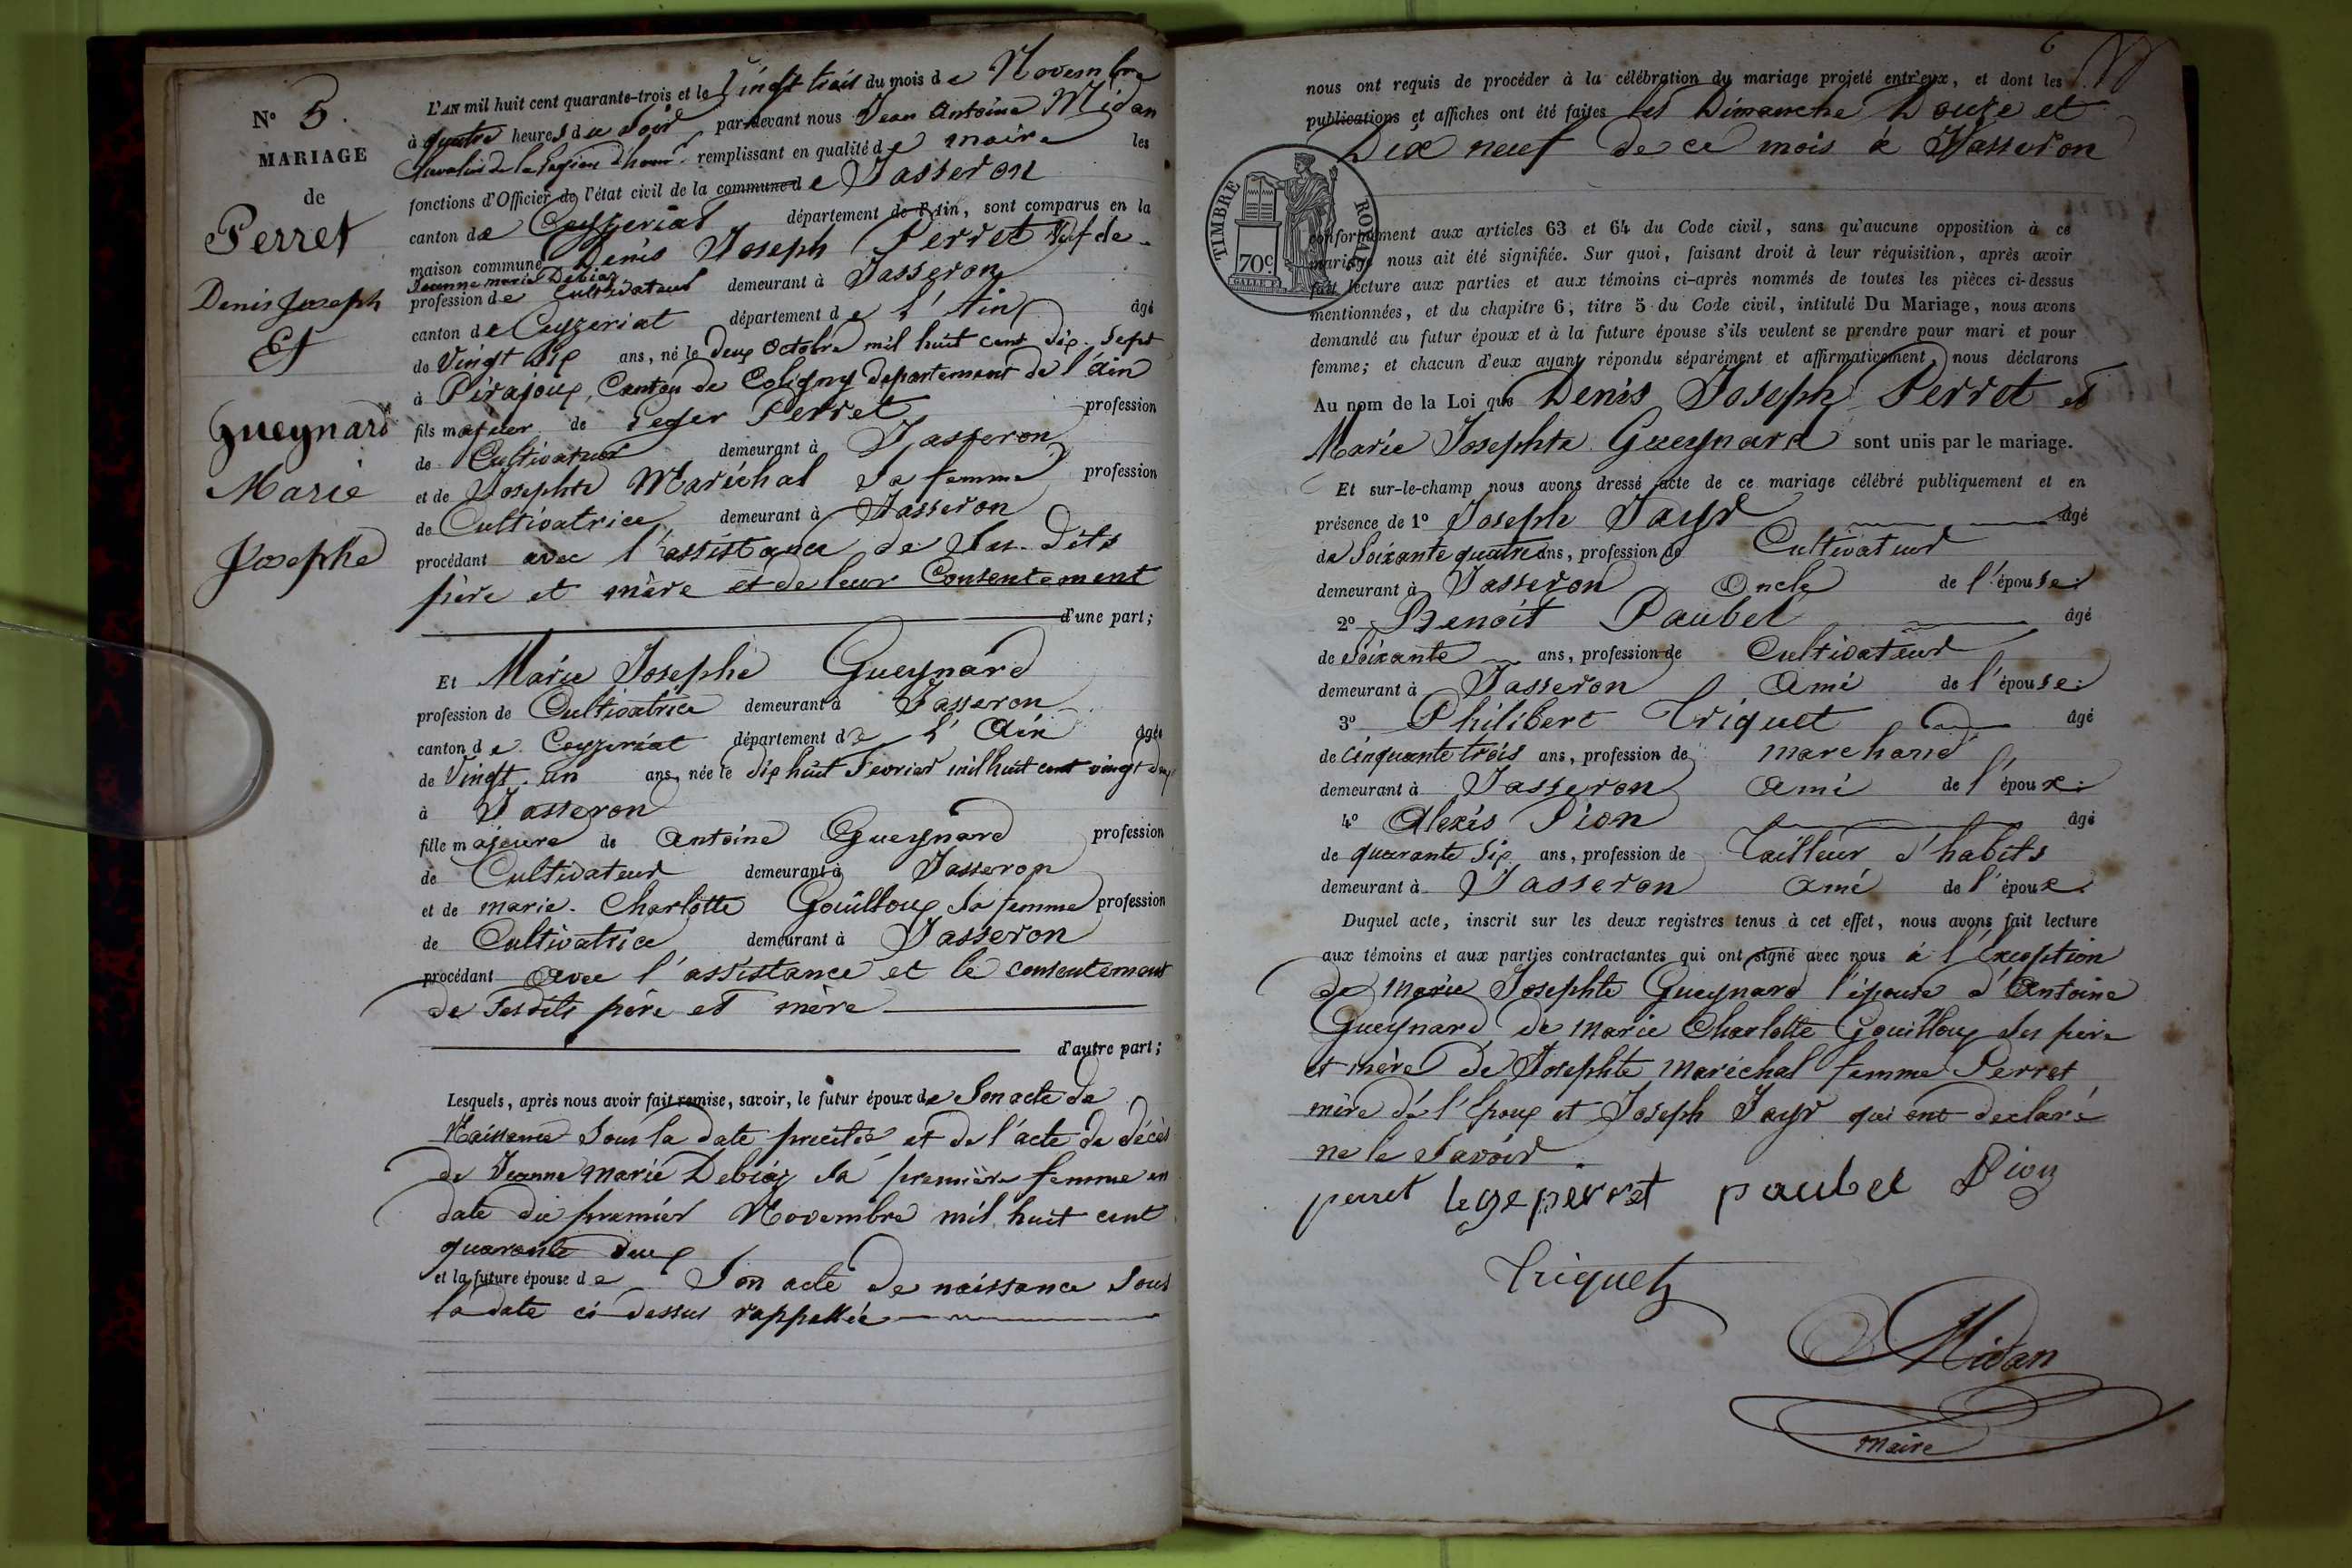 N° 5.
MARIAGE
de
Perret
Denis Joseph
Et
Gueynard
Marie
Josephe
L'AN mil huit cent quarante-trois et le Vingt trois du mois de Novembre
à quatre heures du Soir par-devant nous Jean Antoine Midan
Chevalier de la Légion d'honr. remplissant en qualité de maire les
fonctions d'Officier de l'état civil de la commune de Jasseron
canton de Ceyzeriat département de l'Ain, sont comparus en la
maison commune Denis Joseph Perret Vuf de
Jeanne marie Debiaz
profession de Cultivateur demeurant à Jasseron
canton de Ceyzeriat département de L'Ain âgé
de Vingt Six ans, né le deux Octobre mil huit cent dix-Sept
à Pirajoux, Canton de Coligny departement de l'ain
fils majeur de Leger Perret profession
de Cultivateur demeurant à Jasseron
et de Josephte Maréchal Sa femme profession
de Cultivatrice demeurant à Jasseron
procédant avec l'assistance de Ses Dits
père et mère et de leur Consentement
d'une part;
Et Marie Josephe Gueynard
profession de Cultivatrice demeurant à Jasseron
canton de Ceyzeriat département de L'Ain âgée
de Vingt-un ans, née le dix huit Fevrier mil huit cent vingt deux
à Jasseron
fille majeure de Antoine Gueynard profession
de Cultivateur demeurant à Jasseron
et de marie-Charlotte Gouilloux Sa femme profession
de Cultivatrice demeurant à Jasseron
procédant avec l'assistance et le consentement
de Sesdits père et mère
d'autre part;
Lesquels, après nous avoir fait remise, savoir, le futur époux de Son acte de
Naissance Sous la date precitée et de l'acte de décès
de Jeanne Marie Debiaz Sa première femme en
date du premier Novembre mil huit cent
quarante deux
et la future épouse de Son acte de naissance Sous
la date ci dessus rappellée
6
nous ont requis de procéder à la célébration du mariage projeté entr'eux, et dont les
publications et affiches ont été faites les Dimanche Douze et
Dix neuf de ce mois à Jasseron
TIMBRE ROYAL
70c
conformément aux articles 63 et 64 du Code civil, sans qu'aucune opposition à ce
mariage nous ait été signifiée. Sur quoi, faisant droit à leur réquisition, après avoir
fait lecture aux parties et aux témoins ci-après nommés de toutes les pièces ci-dessus
mentionnées, et du chapitre 6, titre 5 du Code civil, intitulé Du Mariage, nous avons
demandé au futur époux et à la future épouse s'ils veulent se prendre pour mari et pour
femme; et chacun d'eux ayant répondu séparément et affirmativement, nous déclarons
Au nom de la Loi que Denis Joseph Perret et
Marie Josephte Gueynard sont unis par le mariage.
Et sur-le-champ nous avons dressé acte de ce mariage célébré publiquement et en
présence de 1° Joseph Jayr âgé
de Soixante quatre ans, profession de Cultivateur
demeurant à Jasseron Oncle de l'épouse.
2° Benoit Paubel âgé
de Soixante ans, profession de Cultivateur
demeurant à Jasseron Ami de l'épouse.
3° Philibert Triquet âgé
de cinquante trois ans, profession de marchand
demeurant à Jasseron Ami de l'époux.
4° Alexis Pion âgé
de quarante Six ans, profession de Tailleur d'habits
demeurant à Jasseron ami de l'époux.
Duquel acte, inscrit sur les deux registres tenus à cet effet, nous avons fait lecture
aux témoins et aux parties contractantes qui ont signé avec nous à l'Exception
de Marie Josephte Gueynard l'épouse d'Antoine
Gueynard, de Marie Charlotte Gouilloux Ses père
et mère de Josephte Maréchal femme Perret
mère de l'Epoux et Joseph Jayr qui ont declaré
ne le Savoir.
perret lege perret paubel Pion
Triquet
Midan
maire